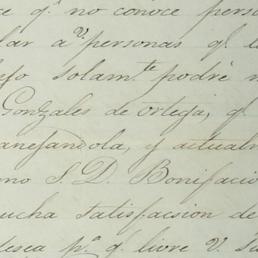 ce q.e no conoce perso
lar a V. personas q.e l
efo solam.te podré n
Gonzales de ortega, q.e
anejandola, y actualm
no S. D. Bonifacio
ucha satisfacsion de
desea p.a q.e livre V. su